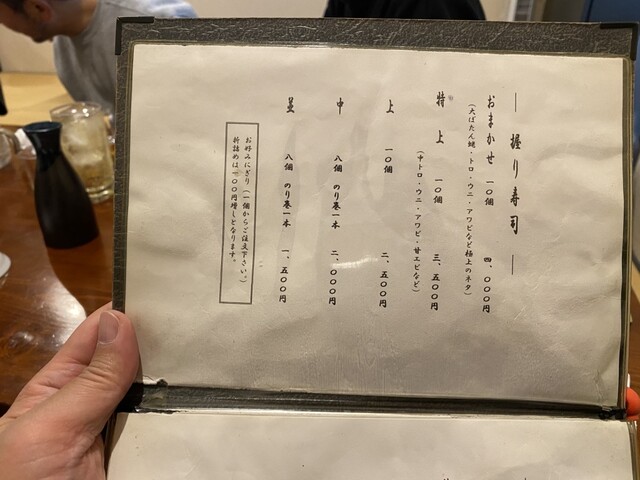 握り寿司
おまかせ 一〇個 四、〇〇〇円
(大ぼたん蝦・トロ・ウニ・アワビなど極上のネタ)
特上 一〇個 三、五〇〇円
(中トロ・ウニ・アワビ・甘エビなど)
上 一〇個 二、五〇〇円
中 八個 のり巻一本 二、〇〇〇円
並 八個 のり巻一本 一、五〇〇円
お好みにぎり(一個からご注文下さい。)
折詰めは一〇〇円増しとなります。